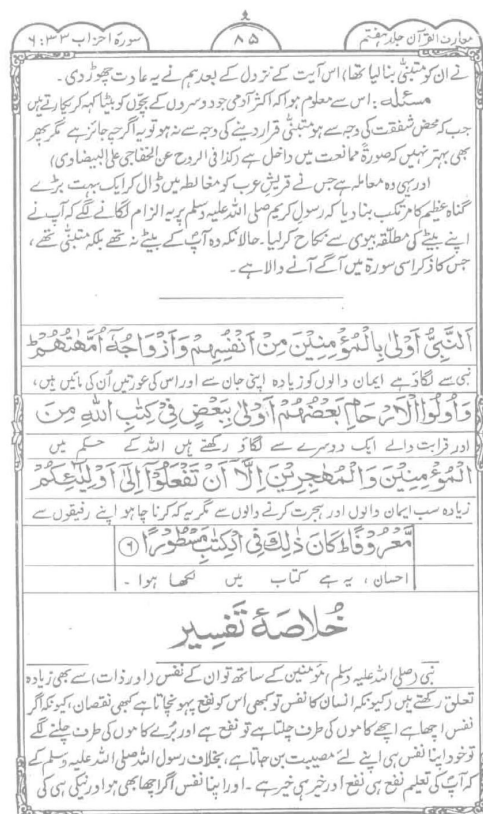 معارف القرآن جلد ہفتم
۸۵
سورۃ احزاب ۳۳:۶
نے ان کو متبنّیٰ بنا لیا تھا) اس آیت کے نزول کے بعد ہم نے یہ عادت چھوڑ دی۔
مسئلہ: اس سے معلوم ہوا کہ اکثر آدمی جو دوسروں کے بچوں کو بیٹا کہہ کر پکارتے ہیں
جب کہ محض شفقت کی وجہ سے ہو متبنّیٰ قرار دینے کی وجہ سے نہ ہو تو یہ اگرچہ جائز ہے مگر پھر
بھی بہتر نہیں کہ صورۃً ممانعت میں داخل ہے (کذا فی الروح عن الخفاجی علی البیضاوی)
اور یہی وہ معاملہ ہے جس نے قریش عرب کو مغالطہ میں ڈال کر ایک بہت بڑے
گناہ عظیم کا مرتکب بنا دیا کہ رسول کریم صلی اللہ علیہ وسلم پر یہ الزام لگانے لگے کہ آپ نے
اپنے بیٹے کی مطلّقہ بیوی سے نکاح کر لیا۔ حالانکہ وہ آپ کے بیٹے نہ تھے بلکہ متبنّیٰ تھے،
جس کا ذکر اسی سورۃ میں آگے آنے والا ہے۔
اَلنَّبِيُّ اَوْلٰى بِالْمُؤْمِنِيْنَ مِنْ اَنْفُسِهِمْ وَاَزْوَاجُهٗٓ اُمَّهٰتُهُمْ ؕ
نبی سے لگاؤ ہے ایمان والوں کو زیادہ اپنی جان سے اور اس کی عورتیں اُن کی مائیں ہیں،
وَاُولُوا الْاَرْحَامِ بَعْضُهُمْ اَوْلٰى بِبَعْضٍ فِيْ كِتٰبِ اللّٰهِ مِنَ
اور قرابت والے ایک دوسرے سے لگاؤ رکھتے ہیں اللہ کے حکم میں
الْمُؤْمِنِيْنَ وَالْمُهٰجِرِيْنَ اِلَّآ اَنْ تَفْعَلُوْٓا اِلٰٓى اَوْلِيٰٓئِكُمْ
زیادہ سب ایمان والوں اور ہجرت کرنے والوں سے مگر یہ کہ کرنا چاہو اپنے رفیقوں سے
مَّعْرُوْفًا ؕ كَانَ ذٰلِكَ فِي الْكِتٰبِ مَسْطُوْرًا ۝۶
احسان، یہ ہے کتاب میں لکھا ہوا۔
خُلاصۂ تفسیر
نبی (صلی اللہ علیہ وسلم) مؤمنین کے ساتھ تو ان کے نفس (اور ذات) سے بھی زیادہ
تعلق رکھتے ہیں (کیونکہ انسان کا نفس تو کبھی اس کو نفع پہونچاتا ہے کبھی نقصان، کیونکہ اگر
نفس اچھا ہے اچھے کاموں کی طرف چلتا ہے تو نفع ہے اور بُرے کاموں کی طرف چلنے لگے
تو خود اپنا نفس ہی اپنے لئے مصیبت بن جاتا ہے، بخلاف رسول اللہ صلی اللہ علیہ وسلم کے
کہ آپ کی تعلیم نفع ہی نفع اور خیر ہی خیر ہے۔ اور اپنا نفس اگر اچھا بھی ہو اور نیکی ہی کی